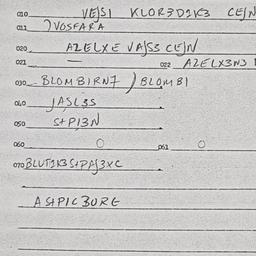 010 VEJSI KLOR3D1K3 CEJN
011 JVOSFARA
020 A2ELXE VAJS3 CEJN
021 — 022 A2ELX3N3
030 BLOMBIRN7 / BLOMBI
040 JASL3S
050 S+PI3N
060 0 061 0
070 BLUT1K3 S+PAJ3XC
A S+PIC3ORE